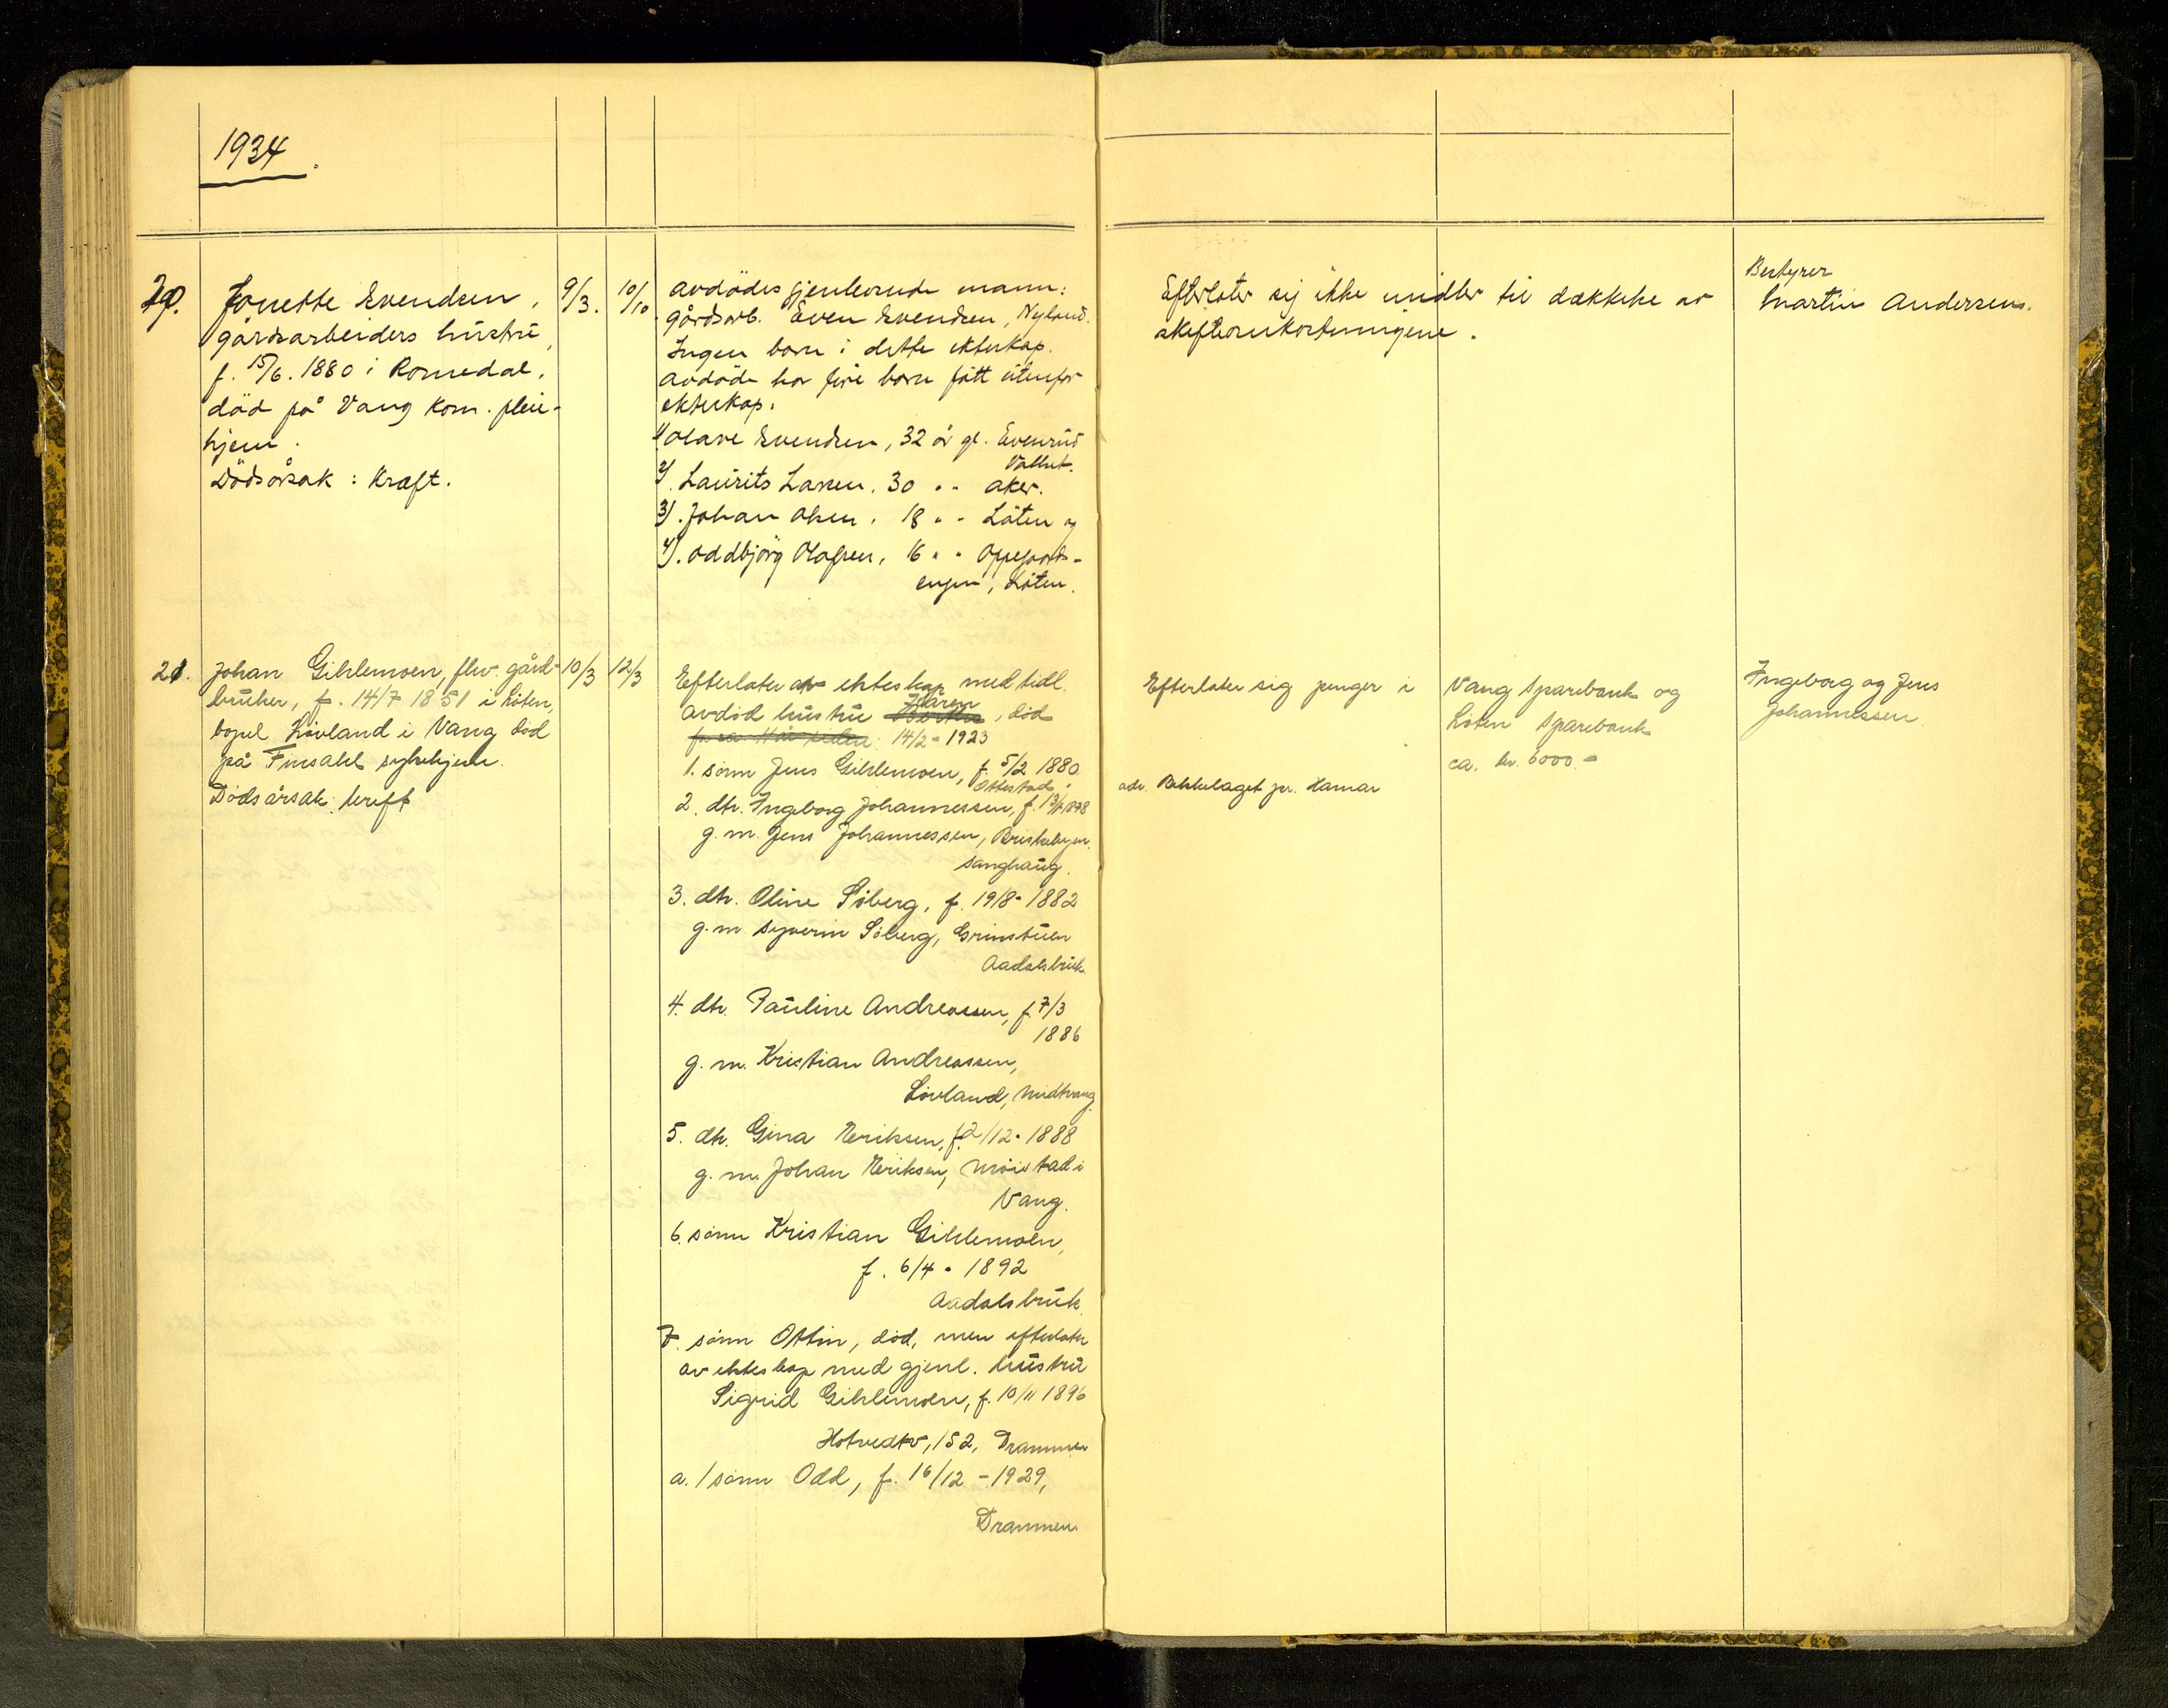 1934
20.
Jonette Evendsen,
gårdsarbeiders hustru,
f. 15/6. 1880 i Romedal,
död på Vang kom. pleie-
hjem.
Dödsårsak: Kræft.
9/3.
10/10.
Avdödes gjenlevende mann:
gårdsarb. Even Evendsen, Nyland.
Ingen barn i dette ekteskap.
Avdöde har fire barn fått utenfor
ekteskap.
1/ Olave Evendsen, 32 år gl. Evenrud
Vallset.
2/. Laurits Larsen, 30 " - Aker.
3/. Johan Olsen, 18 " - Löten og
4/. Oddbjörg Olafsen, 16 " " Oppegaards-
engen, Löten.
Efterlater sig ikke midler til dækkelse av
skifteomkostningene.
Bestyrer
Martin Andersen.
21.
Johan Gihlemoen, fhv. gård-
bruker, f. 14/7 1851 i Löten,
bopel Lövland i Vang död
på Finsahl sykehjem.
Dödsårsak: kreft
10/3
12/3
Efterlater av ekteskap med tidl.
Karen
avdöd hustru Berthe, död
14/2 - 1923
1. sönn Jens Gihlemoen, f. 5/2 1880.
Ottestad.
2. dtr. Ingeborg Johannessen, f.
g. m. Jens Johannessen, Briskebyen.
Sanghaug.
3. dtr. Oline Söberg, f. 19/8 - 1882
g. m. Syverin Söberg, Grinstuen
Aadalsbruk.
4. dtr. Pauline Andreassen, f. 7/3
1886
g. m. Kristian Andreassen,
Lövland, Midtvang.
5. dtr. Gina Eriksen, f. 2/12 - 1888
g. m. Johan Eriksen, Möistad i
Vang.
6. sönn Kristian Gihlemoen,
f. 6/4 - 1892
Aadalsbruk.
7. sönn Ottin, död, men efterlater
av ekteskap med gjenl. hustru
Sigrid Gihlemoen, f. 10/11 1896
Hotvedtv, 152, Drammen
a. / sönn Odd, f. 16/12 - 1929,
Drammen.
Efterlater sig penger i
adr. Bekkelaget pr. Hamar
Vang Sparebank og
Löten Sparebank
ca. kr. 6000.-
Ingeborg og Jens
Johannessen